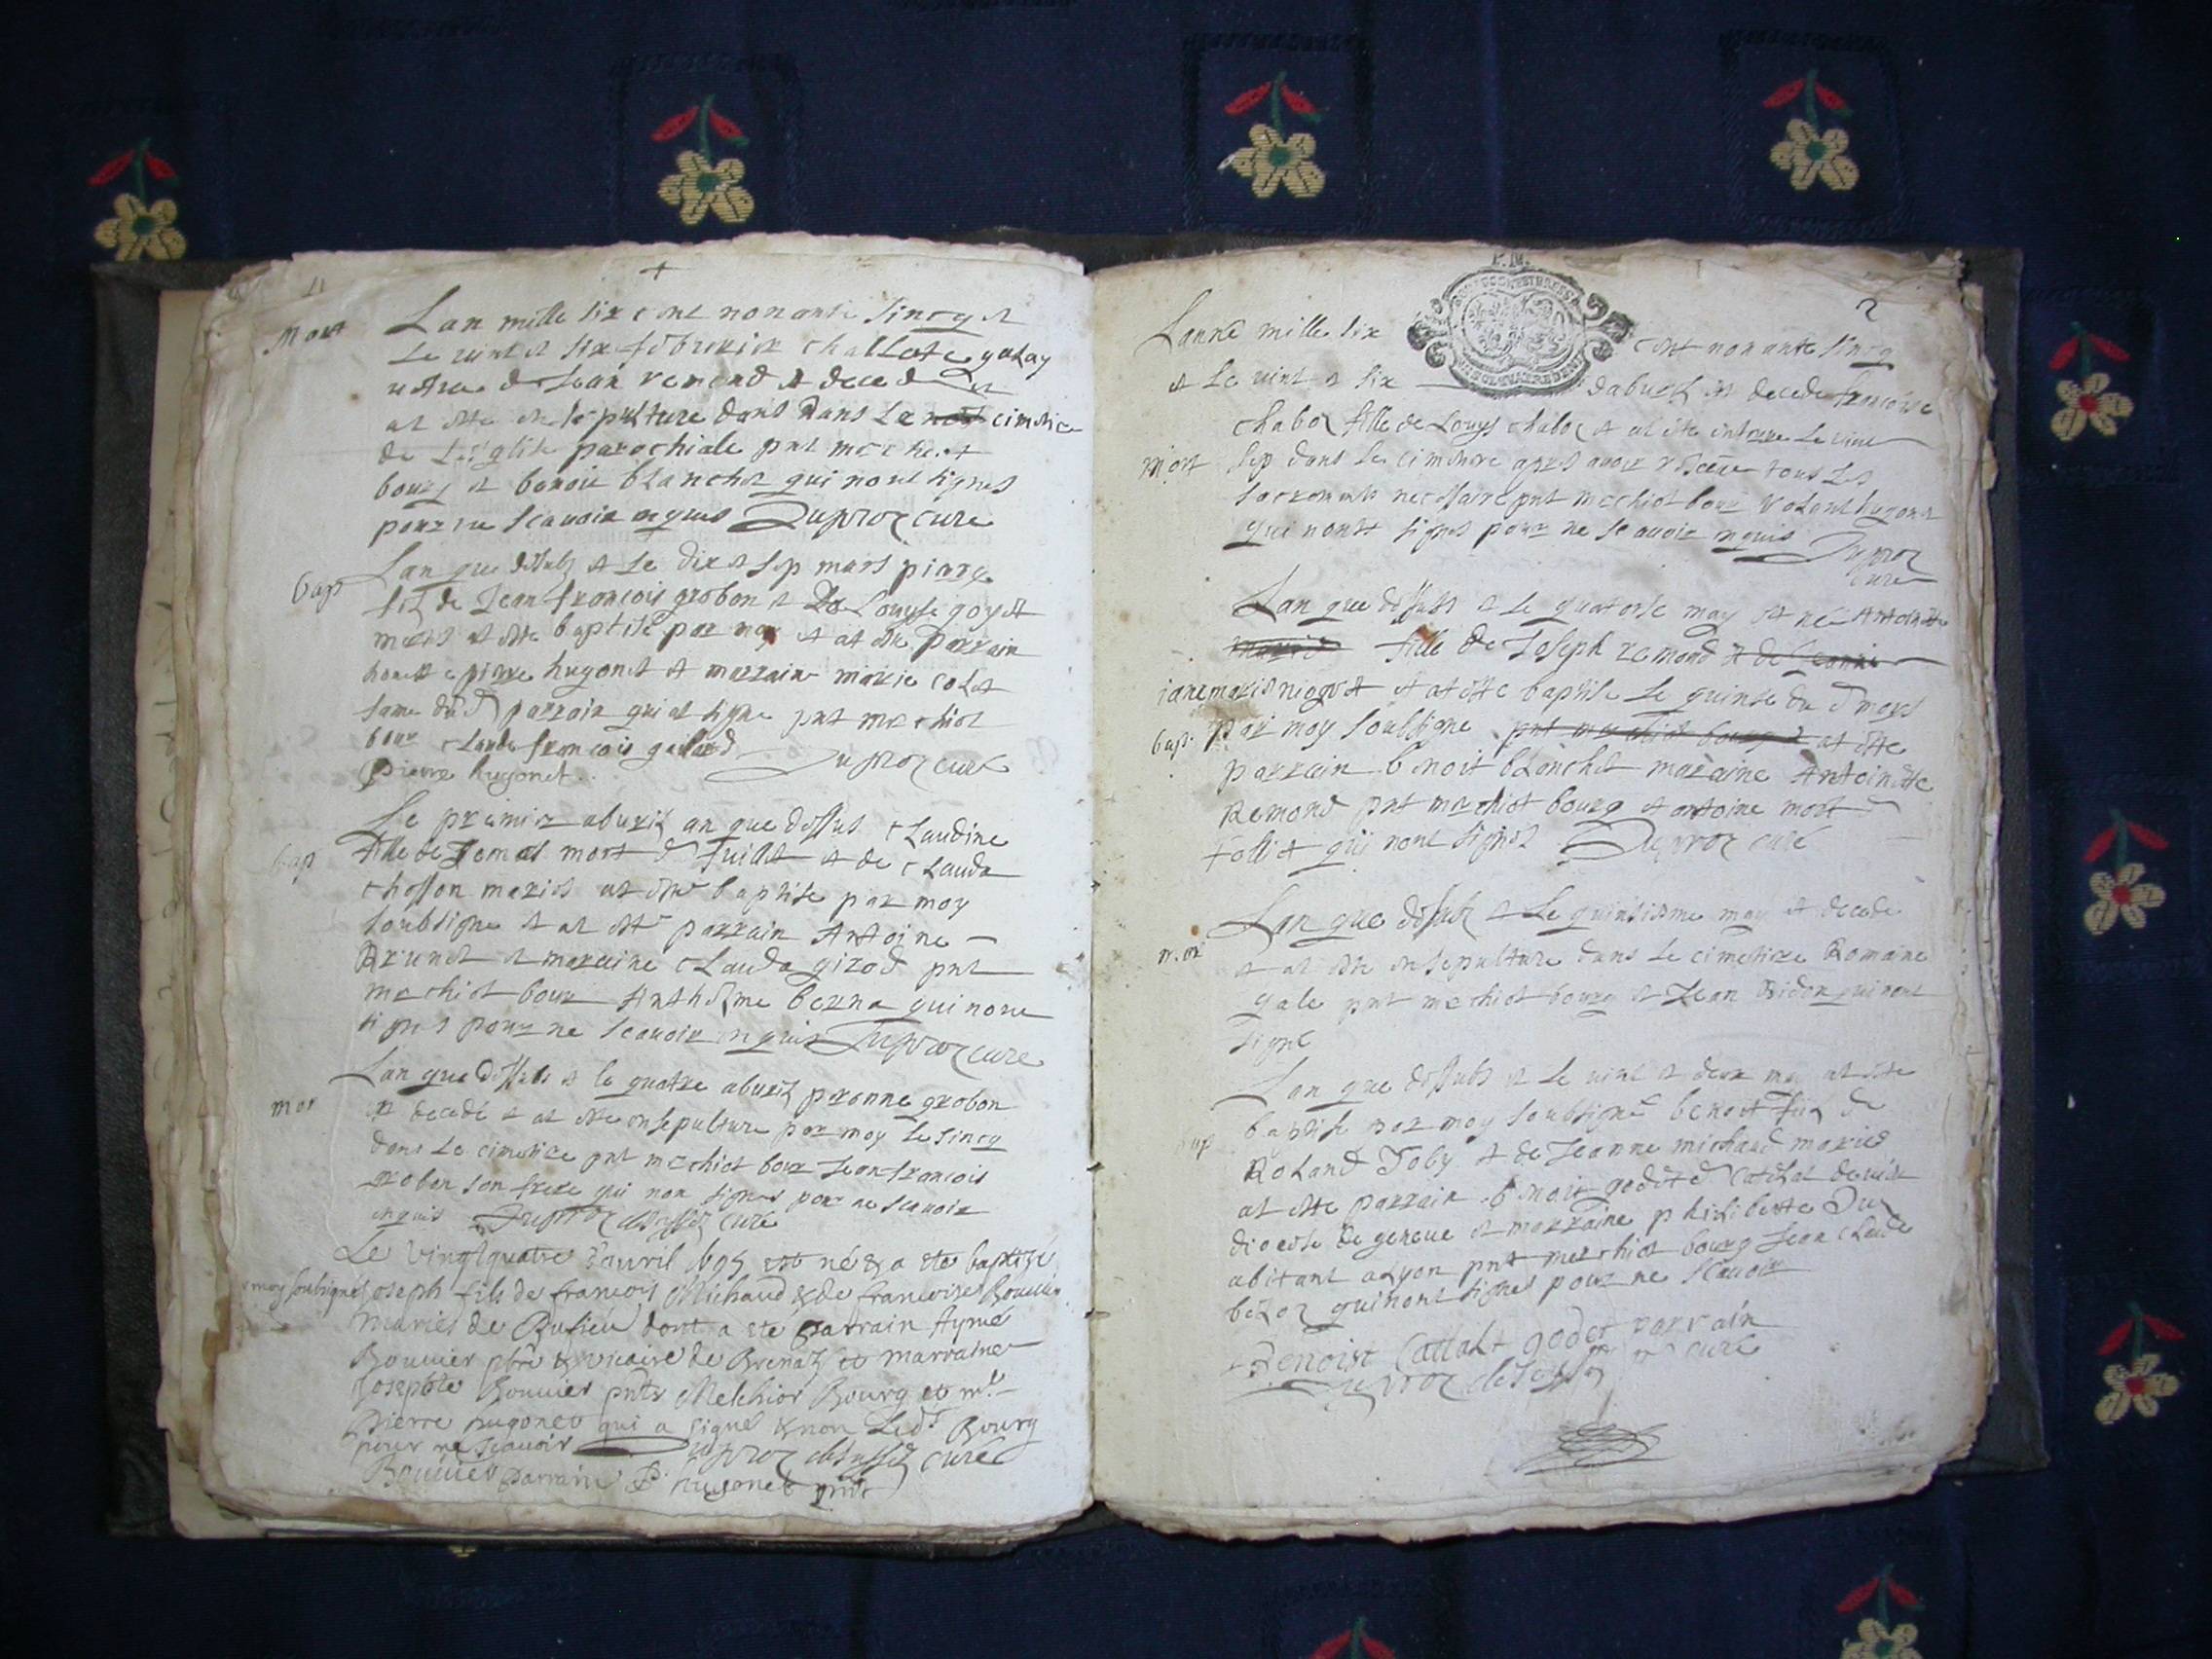 Mort
Lan mille six cent nonante sincq et
le vint et six febvrier challote galay
vefve d Jean remond et decede et
at este en sepulture dans dans le cimetiere
de leglise parochiale pnt mechiot
bourg et benoit blanchet qui nont signes
pour ne scavoir enquis Duproz cure
bap
Lan que dessubz et le dix et sep mars piarre
fil de Jean francois grobon et de Louyse goyet
maries at este baptise par moy et at este parrain
honeste pierre hugonet et marraine marie colet
fame dud parrain qui at signe pnt mechiot
bour claude francois galland
pierre hugonet Duproz cure
bap
Le premier abvril an que dessus claudine
fille de mort d fuillet et de clauda
chosson maries at este baptise par moy
soubsigne et at este parrain Antoine
Brunet et maraine clauda girod pnt
mechiot bour Anthelme berna qui nont
signes pour ne scavoir enquis Duproz cure
mor
Lan que dessubs et le quatre abvril peronne grobon
est decede et at este ensepulture par moy le sincq
dans le cimetiere pnt mechiot bour Jean francois
grobon son frere qui non signes pour ne scavoir
enquis Duproz cure
Le vingtquatre d'avril 1695 est né & a ete baptizé
moy soubsigné Joseph fils de francois Michaud & de francoise Bouvier
mariés de Rufieu dont a eté parrain Aymé
Bouvier pbre & vicaire de Brenaz et marraine
Josephte Bouvier pnts Melchior Bourg et mre
Pierre hugonet qui a signé & non led Bourg
pour ne scavoir Duproz cure
Bouvier parrain P hugonet pnt
2
Lanne mille six cent nonante sincq
et le vint et six dabvril est decede francoise
chaboz fille de Louys chaboz et at este enterre le vint
mort
sep dans le cimetiere apres avoir tous les
sacrements necessaire pnt mechiot bour Roland hugonet
qui nont signes pour ne scavoir enquis Duproz
cure
Lan que dessubs et le quatorse may et né Antoinette
fille de Joseph remond
iane marie niogret et at este baptise le quinse du d moys
bap.
par moy soubsigne at este
parrain benoit blanchet maraine Antoinette
Remond pnt mechiot bourg et antoine mort d
follit qui nont signes Duproz curé
Lan que dessubz et le quinsieme may et decede
et at este ensepulture dans le cimetiere Romaine
gale pnt mechiot bourg et Jean qui nont
signe
Lan que dessubs et le vint et deux may at este
bap
baptise par moy soubsigné benoit filz de
Roland Joly et de Jeanne michaud maries
at este parrain benoit
diocese de geneve et marraine philiberte
abitant a Lyon pnt merchiot bourg Jean claude
qui nont signes pour ne scavoir
Benoist Cattalt godet parrain
Duproz cure